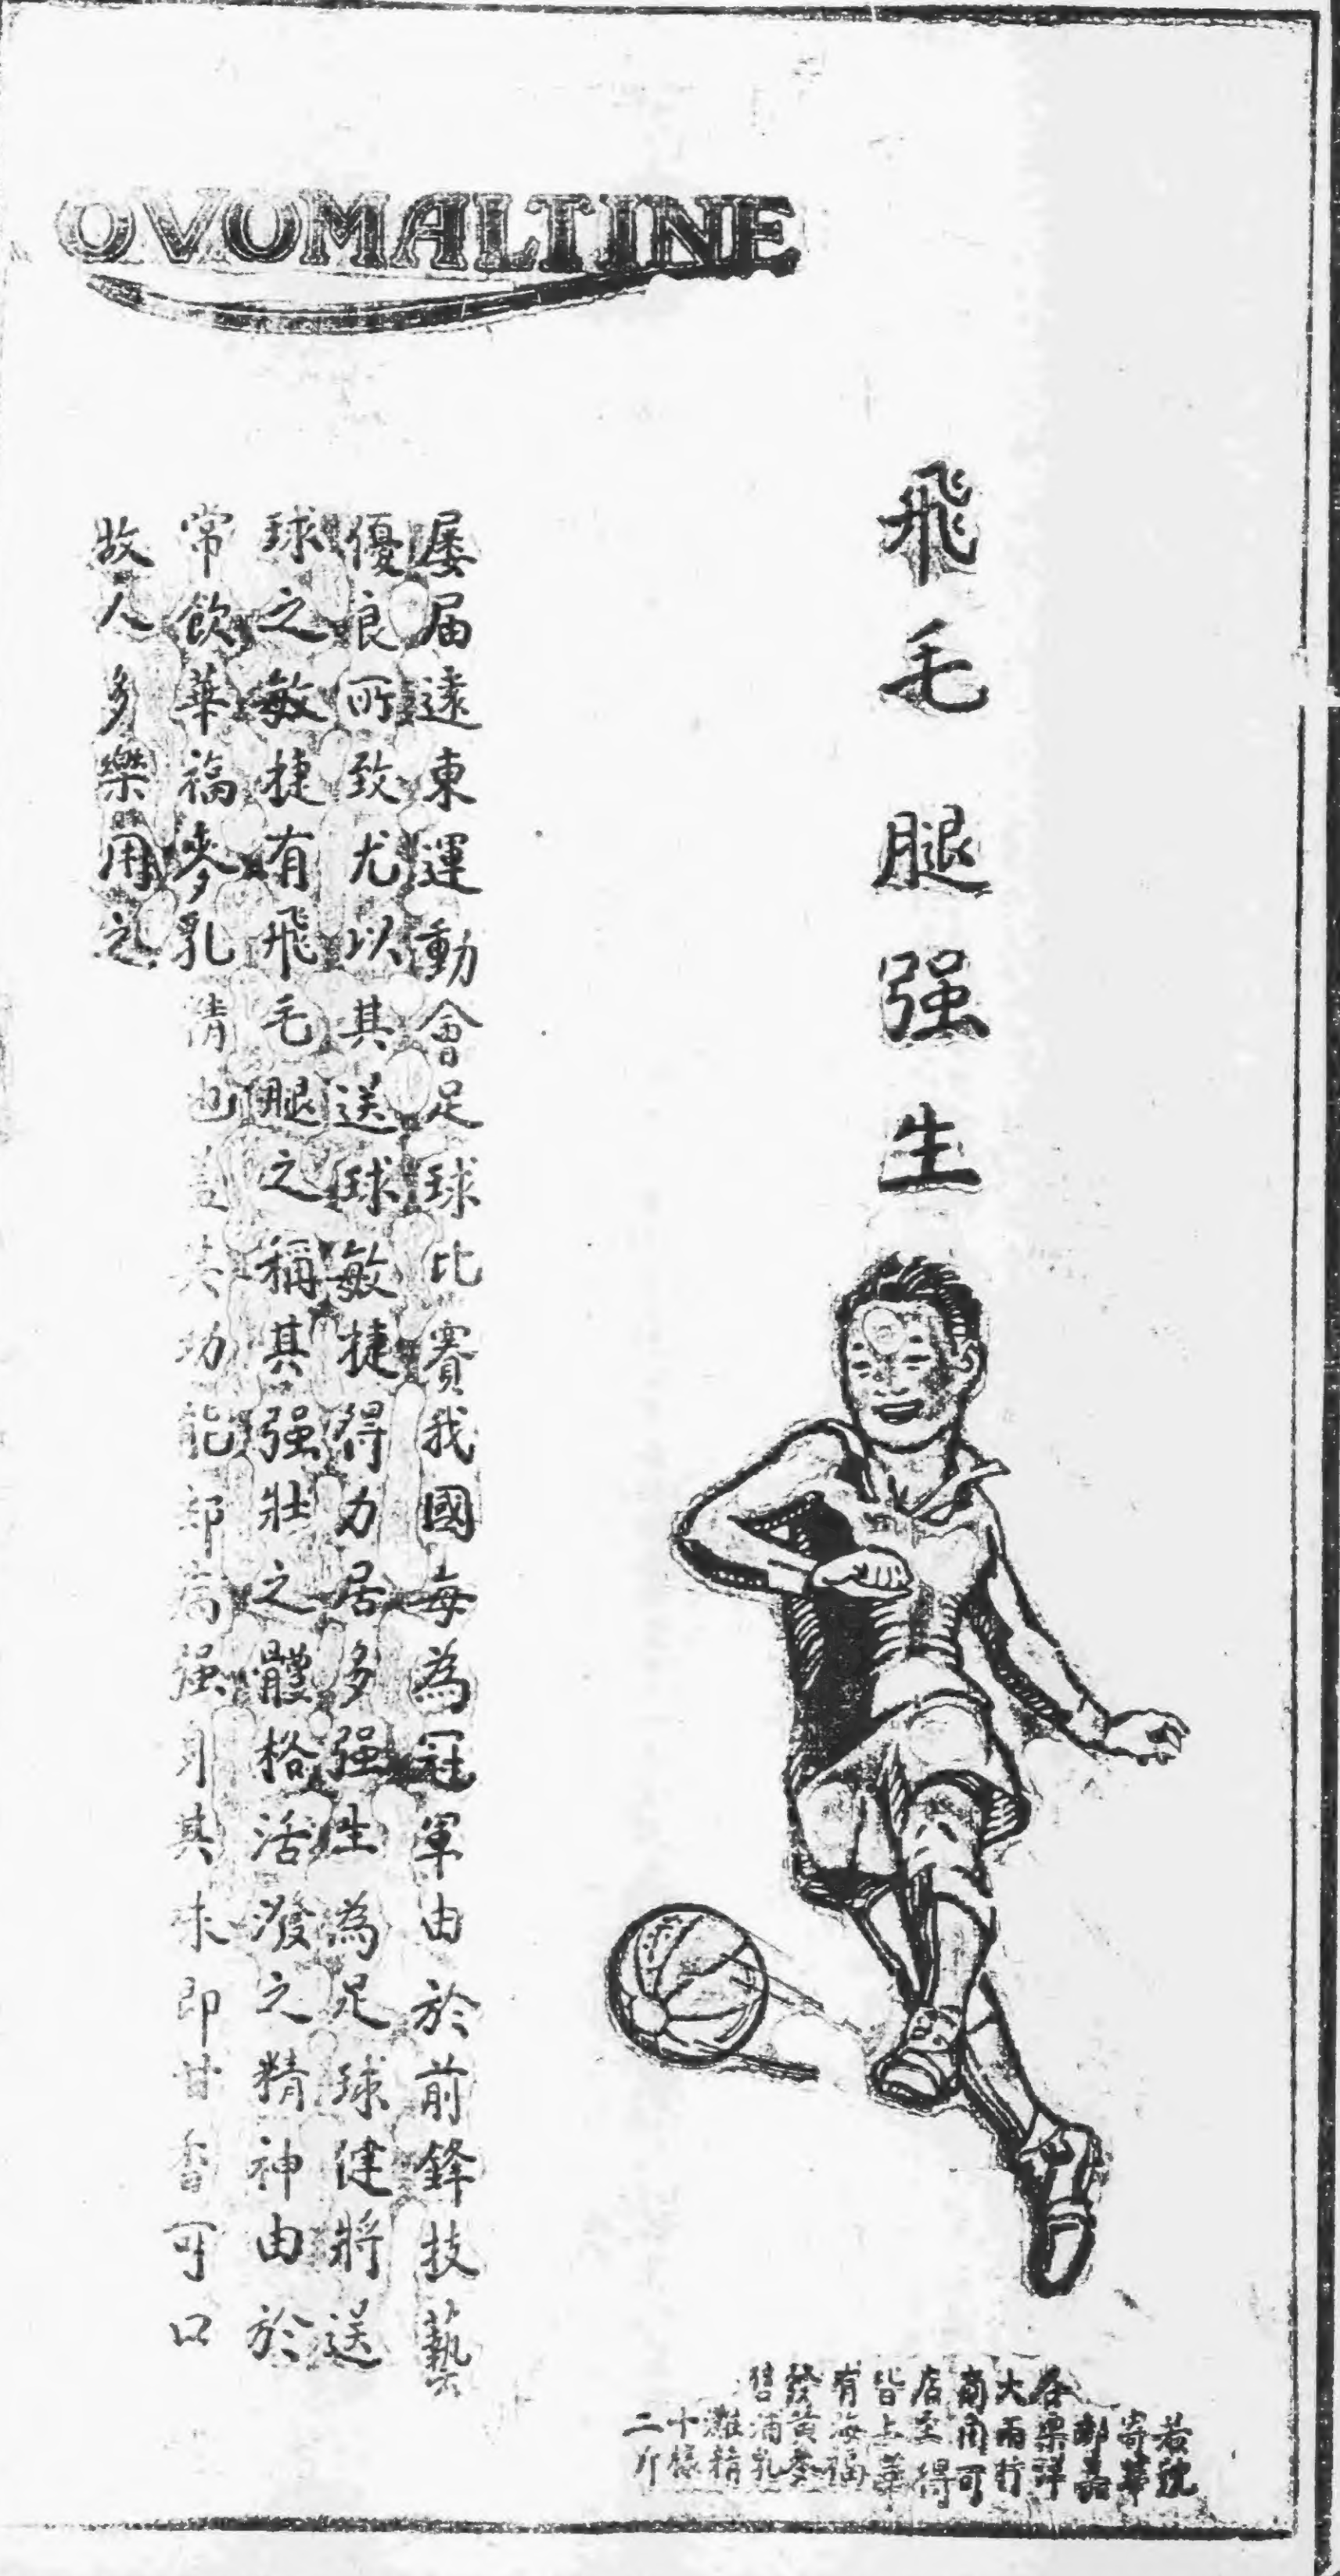 OVOMALTINE
飛毛腿强生
屡届遠東運動會足球比賽我國每為冠軍由於前鋒技藝
優良所致尤以其送球敏捷得力居多强生為足球健將送
球之敏捷有飛毛腿之稱其强壯之體格活潑之精神由於
常飲華福麥乳精也蓋其功能却病强身其味即甘香可口
故人多樂用之
各大商店皆有發售
若寄郵票兩角至上海黃浦灘十二
號華嘉洋行可得華福麥乳精樣